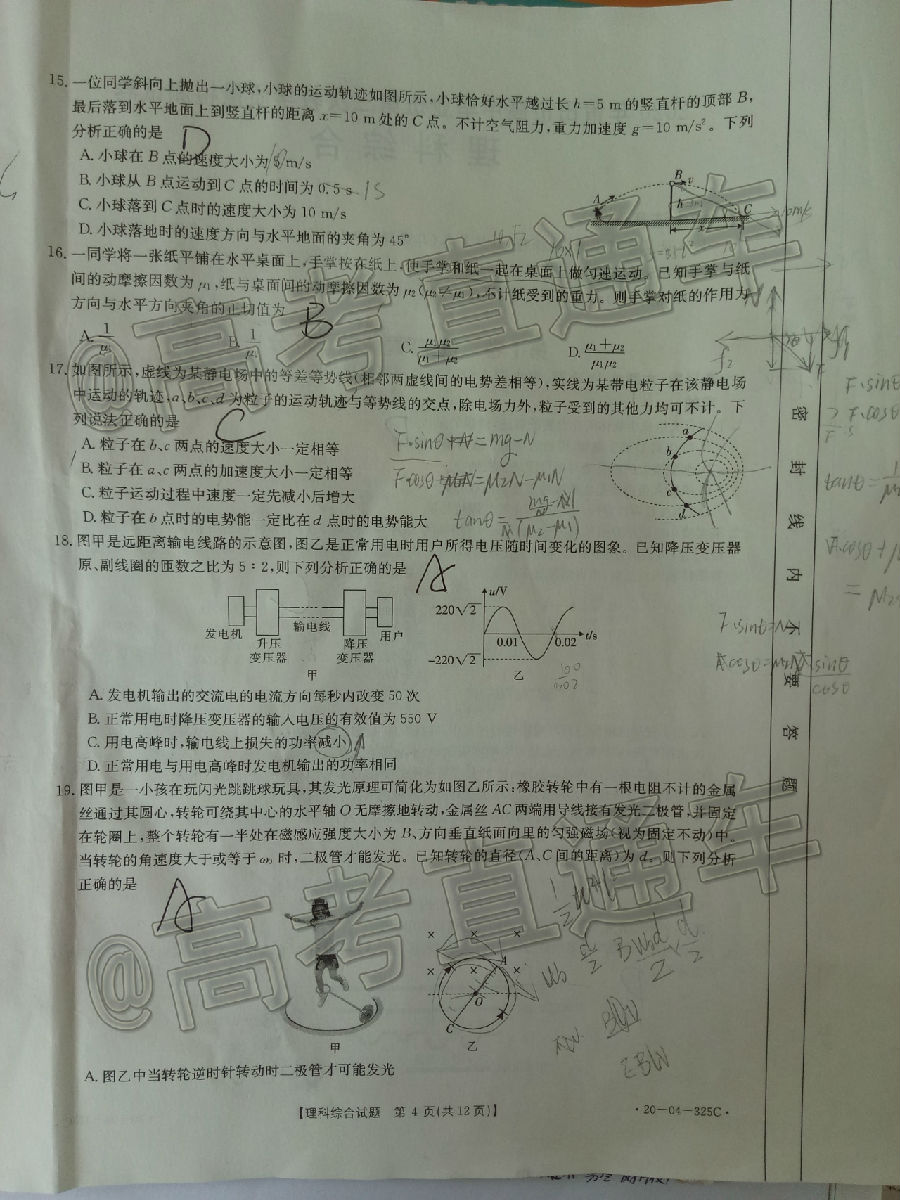 15. 一位同学斜向上抛出一小球,小球的运动轨迹如图所示,小球恰好水平越过长 h=5 m的竖直杆的顶部 B,
最后落到水平地面上到竖直杆的距离 x=10 m处的 C 点。不计空气阻力,重力加速度 g=10 m/s²。下列
分析正确的是 D
A. 小球在 B 点的速度大小为 5 m/s
B. 小球从 B 点运动到 C 点的时间为 0.5 s 1s
C. 小球落到 C 点时的速度大小为 10 m/s
D. 小球落地时的速度方向与水平地面的夹角为 45°
A B h C x
16. 一同学将一张纸平铺在水平桌面上,手掌按在纸上,使手掌和纸一起在桌面上做匀速运动。已知手掌与纸
间的动摩擦因数为 μ₁,纸与桌面间的动摩擦因数为 μ₂(μ₂≠μ₁),不计纸受到的重力。则手掌对纸的作用力
方向与水平方向夹角的正切值为 B
A. 1/μ₁ C. μ₁μ₂/(μ₁+μ₂) D. (μ₁+μ₂)/μ₁μ₂
17. 如图所示,虚线为某静电场中的等差等势线(相邻两虚线间的电势差相等),实线为某带电粒子在该静电场
中运动的轨迹,a、b、c、d 为粒子的运动轨迹与等势线的交点,除电场力外,粒子受到的其他力均可不计。下
列说法正确的是 C
A. 粒子在 b、c 两点的速度大小一定相等
B. 粒子在 a、c 两点的加速度大小一定相等
C. 粒子运动过程中速度一定先减小后增大
D. 粒子在 b 点时的电势能一定比在 d 点时的电势能大
a b c d
18. 图甲是远距离输电线路的示意图,图乙是正常用电时用户所得电压随时间变化的图象。已知降压变压器
原、副线圈的匝数之比为 5∶2,则下列分析正确的是 A
发电机 升压变压器 输电线 降压变压器 用户
甲
u/V
220√2
0.01 0.02 t/s
-220√2
乙
A. 发电机输出的交流电的电流方向每秒内改变 50 次
B. 正常用电时降压变压器的输入电压的有效值为 550 V
C. 用电高峰时,输电线上损失的功率减小
D. 正常用电与用电高峰时发电机输出的功率相同
19. 图甲是一小孩在玩闪光跳跳球玩具,其发光原理可简化为如图乙所示:橡胶转轮中有一根电阻不计的金属
丝通过其圆心,转轮可绕其中心的水平轴 O 无摩擦地转动,金属丝 AC 两端用导线接有发光二极管,并固定
在轮圈上,整个转轮有一半处在磁感应强度大小为 B、方向垂直纸面向里的匀强磁场(视为固定不动)中。
当转轮的角速度大于或等于 ω₀ 时,二极管才能发光。已知转轮的直径(A、C 间的距离)为 d。则下列分析
正确的是
A
A O C
甲 乙
A. 图乙中当转轮逆时针转动时二极管才可能发光
【理科综合试题 第 4 页(共 12 页)】 ·20-04-325C·
密 封 线 内 不 要 答 题
@高考直通车
@高考直通车